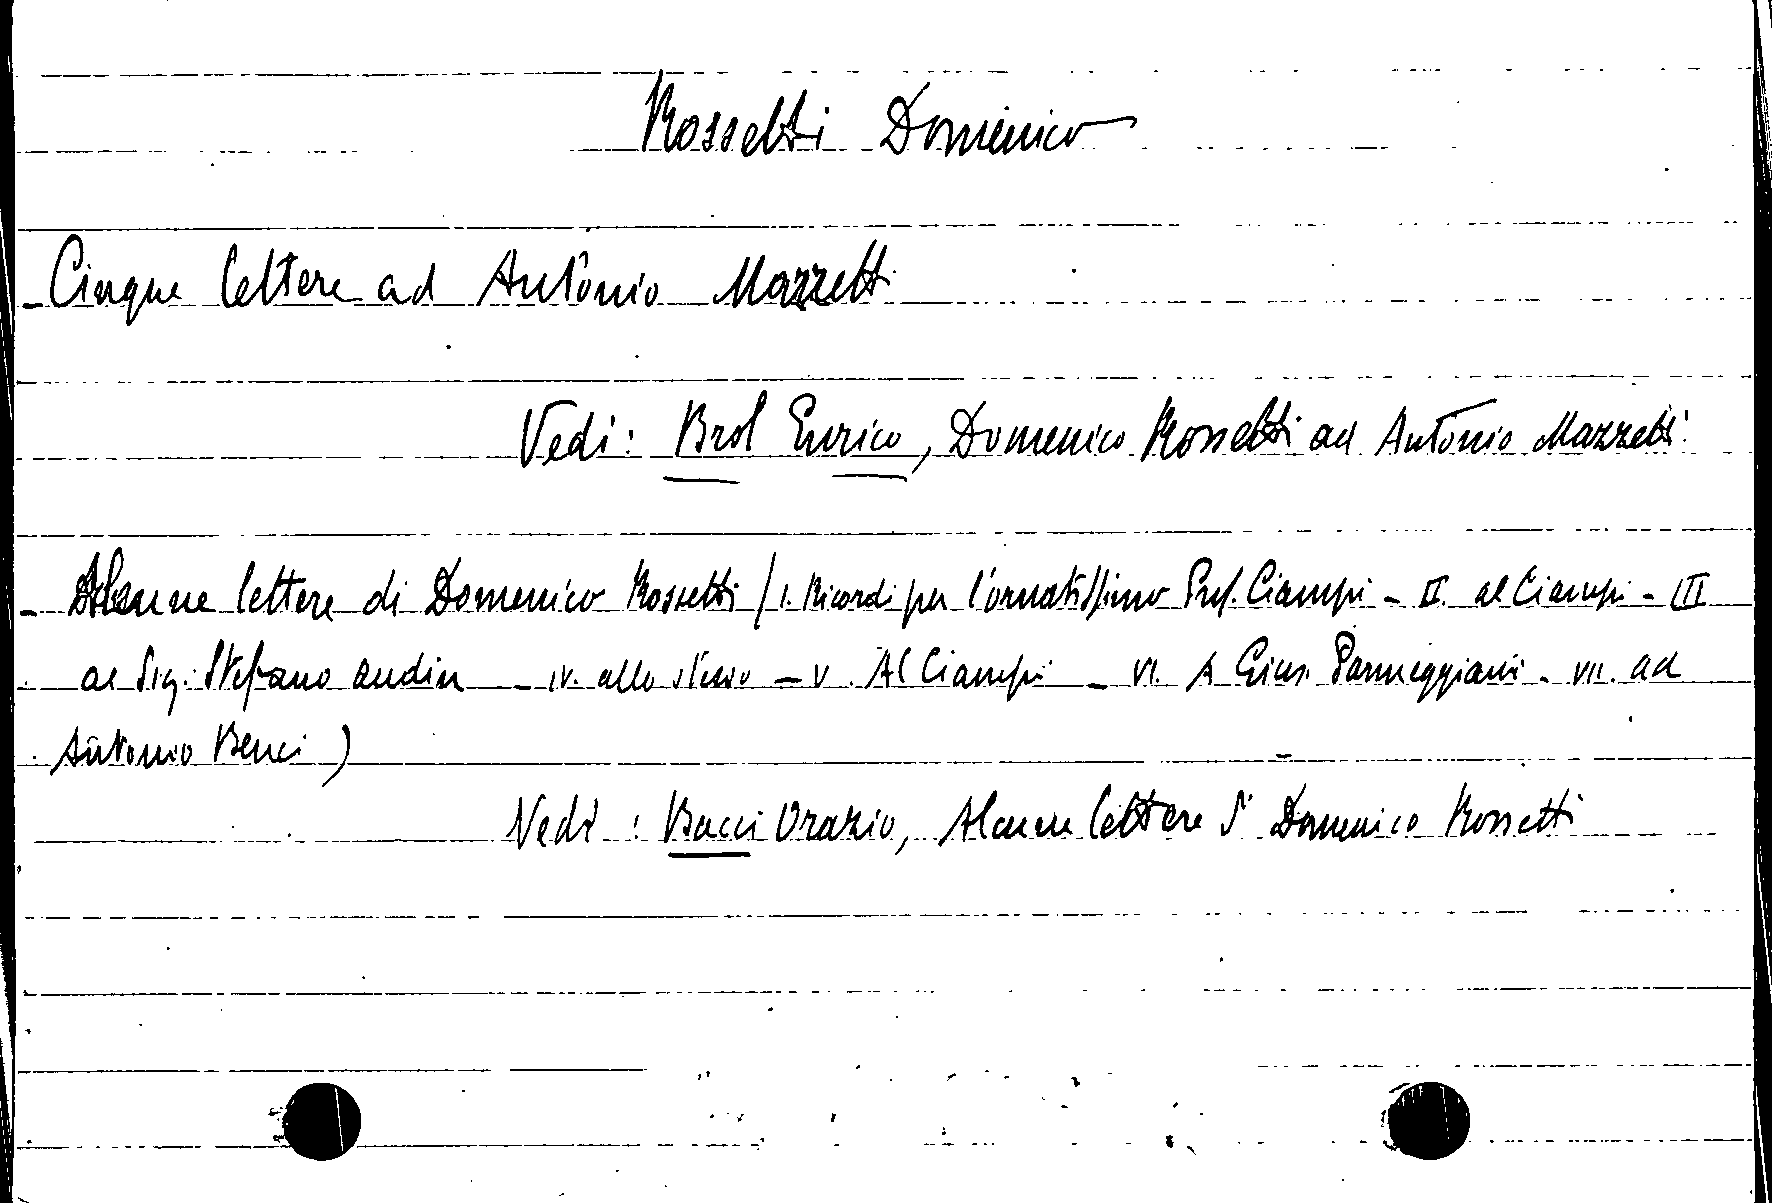 Rossetti Domenico
- Cinque lettere ad Antonio Mazzetti
Vedi: Brol Enrico, Domenico Rossetti ad Antonio Mazzetti.
- Alcune lettere di Domenico Rossetti (I. Ricordi per l'ornatissimo Prof. Ciampi - II. al Ciampi - III
al Sig. Stefano Audin - IV. allo stesso - V. Al Ciampi - VI. A Gius. Parmeggiani - VII. ad
Antonio Benci)
Vedi: Bacci Orazio, Alcune lettere di Domenico Rossetti